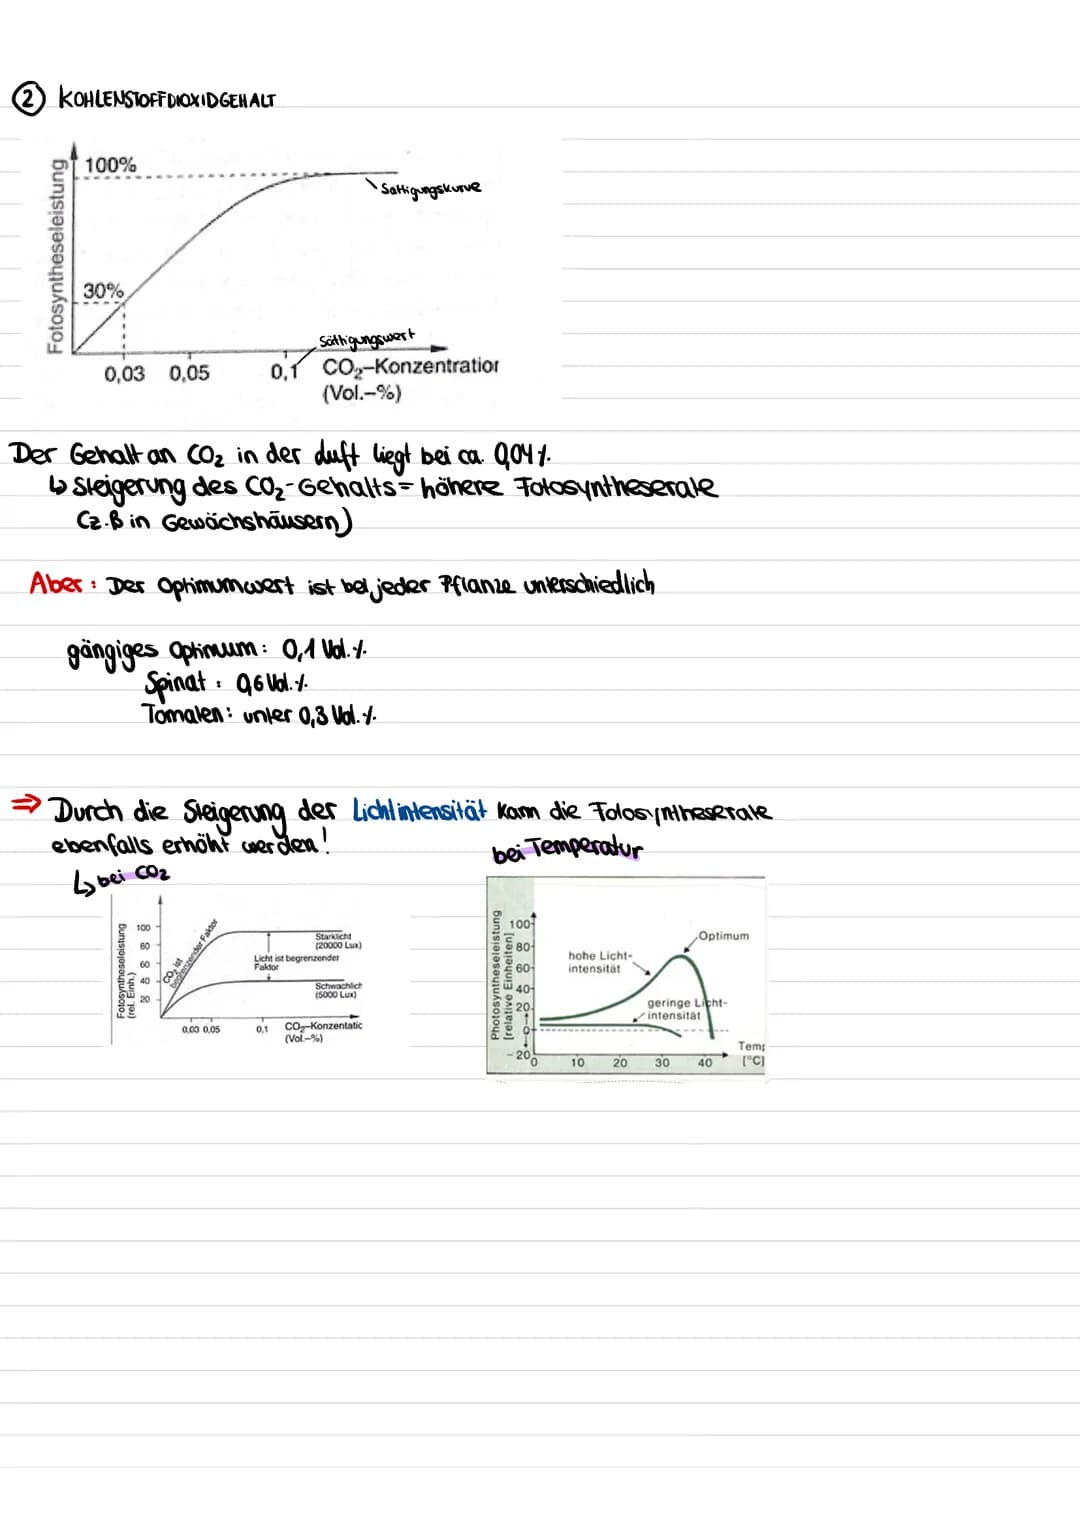 ② KOHLENSTOFFDIOXIDGEHALT
Fotosyntheseleistung
100%
Sättigungskurve
30%
Sättigungswert
0,03 0,05 0,1 CO₂-Konzentration
(Vol.-%)
Der Gehalt an CO₂ in der Luft liegt bei ca. 0,04%.
↳ Steigerung des CO₂-Gehalts = höhere Fotosyntheserate
(z.B in Gewächshäusern)
Aber: Der Optimumwert ist bei jeder Pflanze unterschiedlich
gängiges Optimum: 0,1 Vol.%.
Spinat: 0,6 Vol.%.
Tomaten: unter 0,3 Vol.%.
⇒ Durch die Steigerung der Lichtintensität kann die Fotosyntheserate
ebenfalls erhöht werden!
↳ bei CO₂
bei Temperatur
Fotosyntheseleistung
(rel. Einh.)
100
80
60
40
20
CO₂ ist
begrenzender Faktor
Starklicht
(20000 Lux)
Licht ist begrenzender
Faktor
Schwachlich
(5000 Lux)
0,03 0,05 0,1 CO₂-Konzentatic
(Vol.-%)
Photosyntheseleistung
[relative Einheiten]
100
80
60
40
20
0
-20
Optimum
hohe Licht-
intensität
geringe Licht-
intensität
Temp
0 10 20 30 40 [°C]